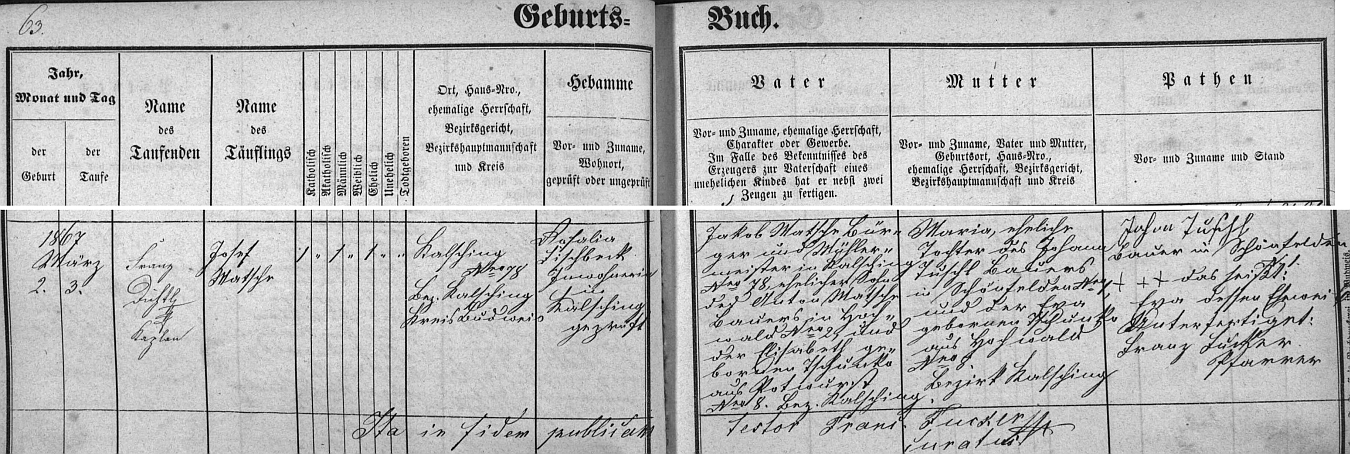 63.
Geburts=
Buch.
Jahr,
Monat und Tag
der
Geburt
der
Taufe
Name
des
Taufenden
Name
des
Täuflings
Katholisch
Akatholisch
Männlich
Weiblich
Ehelich
Unehelich
Todtgeboren
Ort, Haus-Nro.,
ehemalige Herrschaft,
Bezirksgericht,
Bezirkshauptmannschaft
und Kreis
Hebamme
Vor- und Zuname,
Wohnort,
geprüft oder ungeprüft
Vater
Vor- und Zuname, ehemalige Herrschaft,
Charakter oder Gewerbe.
Im Falle des Bekenntnisses des
Erzeugers zur Vaterschaft eines
unehelichen Kindes hat er nebst zwei
Zeugen zu fertigen.
Mutter
Vor- und Zuname, Vater und Mutter,
Geburtsort, Haus-Nro.,
ehemalige Herrschaft, Bezirksgericht,
Bezirkshauptmannschaft und Kreis
Pathen
Vor- und Zuname und Stand
1867
März
2. 3.
Franz
Kaplan
Josef
Watsche
1 " 1 " 1 " "
Kalsching
Nro 78
Bez. Kalsching
Kreis Budweis
Rosalia
Fischbeck
Inwohnerin
in
Kalsching
geprüft
Jakob Watsche Bür-
ger und Müller-
meister in Kalsching
Nro 78, ehelicher Sohn
des Anton Watsche
Bauers in Hoch-
wald Nro und
der Elisabeth ge-
bornen Tschunko
aus
Nro 8. Bez. Kalsching
Maria, eheliche
Tochter des Johann
Tuschl Bauers
in Schönfelden Nro 1
und der Eva
gebornen Tschunko
aus Hochwald
Nro 8
Bezirk Kalsching
Johan Tuschl
Bauer in Schönfelden
+ + + das heißt:
Eva dessen Eheweib
Unterfertiget:
Franz Fucker
Pfarrer
Ita in fidem publicam
testor Franz Fucker
curatus